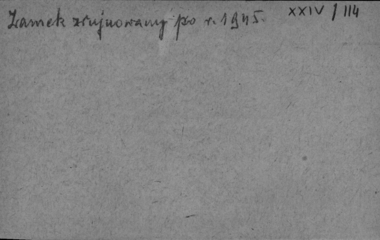 Zamek zrujnowany po r. 1945. XXIV/114